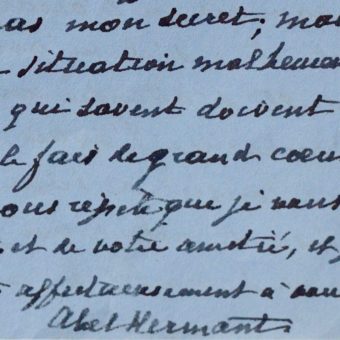 as mon secret; mai
situation malheureu
qui savent doivent
le fais de grand coeur
ous répète que je vous
et de votre amitié, et
affectueusement à vous
Abel Hermant